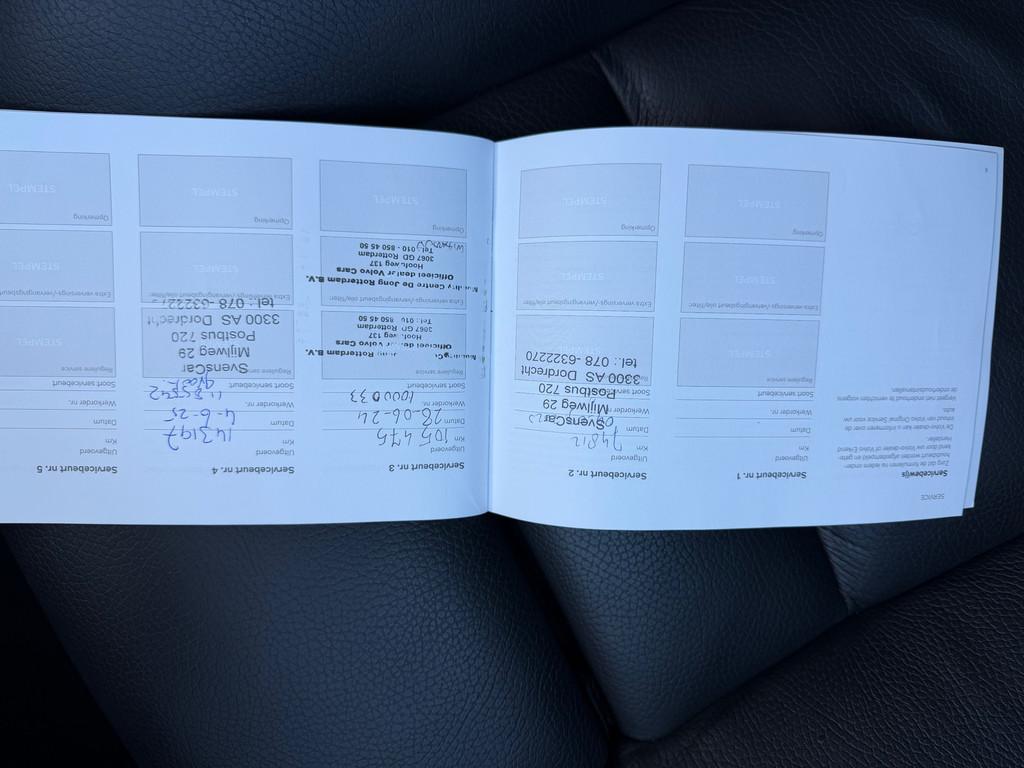 SERVICE
Servicebewijs
Zorg dat de formulieren nadere onder-
houdsbeurt worden afgestempeld en gete-
kend door uw Volvo-dealer of Volvo Erkend
Hersteller.
De Volvo-dealer kan u informeren over de
inhoud van Volvo Original Service voor uw
auto.
Vergeet niet onderhoud te verrichten volgens
de onderhoudstabellen.
Servicebeurt nr. 1
Uitgevoerd
Km
Datum
Werkorder nr.
Soort servicebeurt
Reguliere service
STEMPEL
Extra verversings-/vervangingsbeurt olie/filter
STEMPEL
Opmerking
STEMPEL
Servicebeurt nr. 2
Uitgevoerd
Km 74812
Datum
Werkorder nr.
Soort servicebeurt
SvensCar
Mijlweg 29
Postbus 720
3300 AS Dordrecht
tel.: 078-6322270
Extra verversings-/vervangingsbeurt olie/filter
STEMPEL
Opmerking
STEMPEL
Servicebeurt nr. 3
Uitgevoerd
Km 105 475
Datum 28-06-24
Werkorder nr. 1000033
Soort servicebeurt
Reguliere service
Rotterdam B.V.
Officieel dealer Volvo Cars
weg 137
3067 GD Rotterdam
Tel.: 010 - 850 45 50
Extra verversings-/vervangingsbeurt olie/filter
Mobility Centre De Jong Rotterdam B.V.
Officieel dealer Volvo Cars
Hoofdweg 137
3067 GD Rotterdam
Tel.: 010 - 850 45 50
Opmerking
STEMPEL
Servicebeurt nr. 4
Uitgevoerd
Km 143197
Datum 4-6-25
Werkorder nr.
Soort servicebeurt
SvensCar
Mijlweg 29
Postbus 720
3300 AS Dordrecht
tel.: 078-63222
Extra verversings-/vervangingsbeurt olie/filter
STEMPEL
Opmerking
STEMPEL
Servicebeurt nr. 5
Uitgevoerd
Km
Datum
Werkorder nr.
Soort servicebeurt
Reguliere service
STEMPEL
Extra verversings-/vervangingsbeurt olie/filter
STEMPEL
Opmerking
STEMPEL